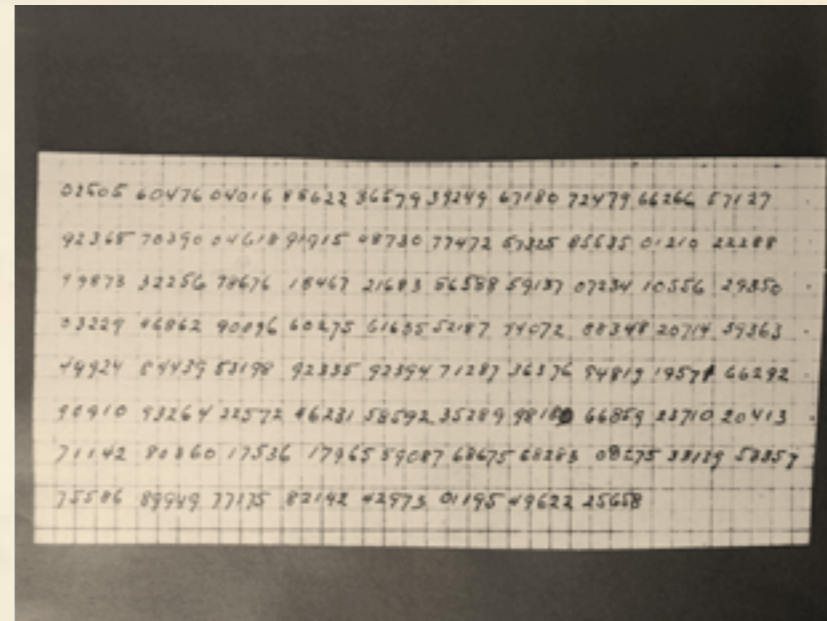 60476 04016 36579 39249 67180 72479 66266 57127
92365 70390 04618 91915 48730 77472 85635 01210 22288
32256 78676 18467 21683 56588 59137 07234 10556 29350
03229 46862 90096 60275 61635 52187 74072 08348 20714 39363
49924 84439 53198 92335 92394 71287 36376 66292
90910 93264 22572 46231 58592 35289 66859 23710 20413
71142 80360 17536 17965 59087 68675 68283 08275
75586 89949 77175 82192 42973 01195 49622 25658